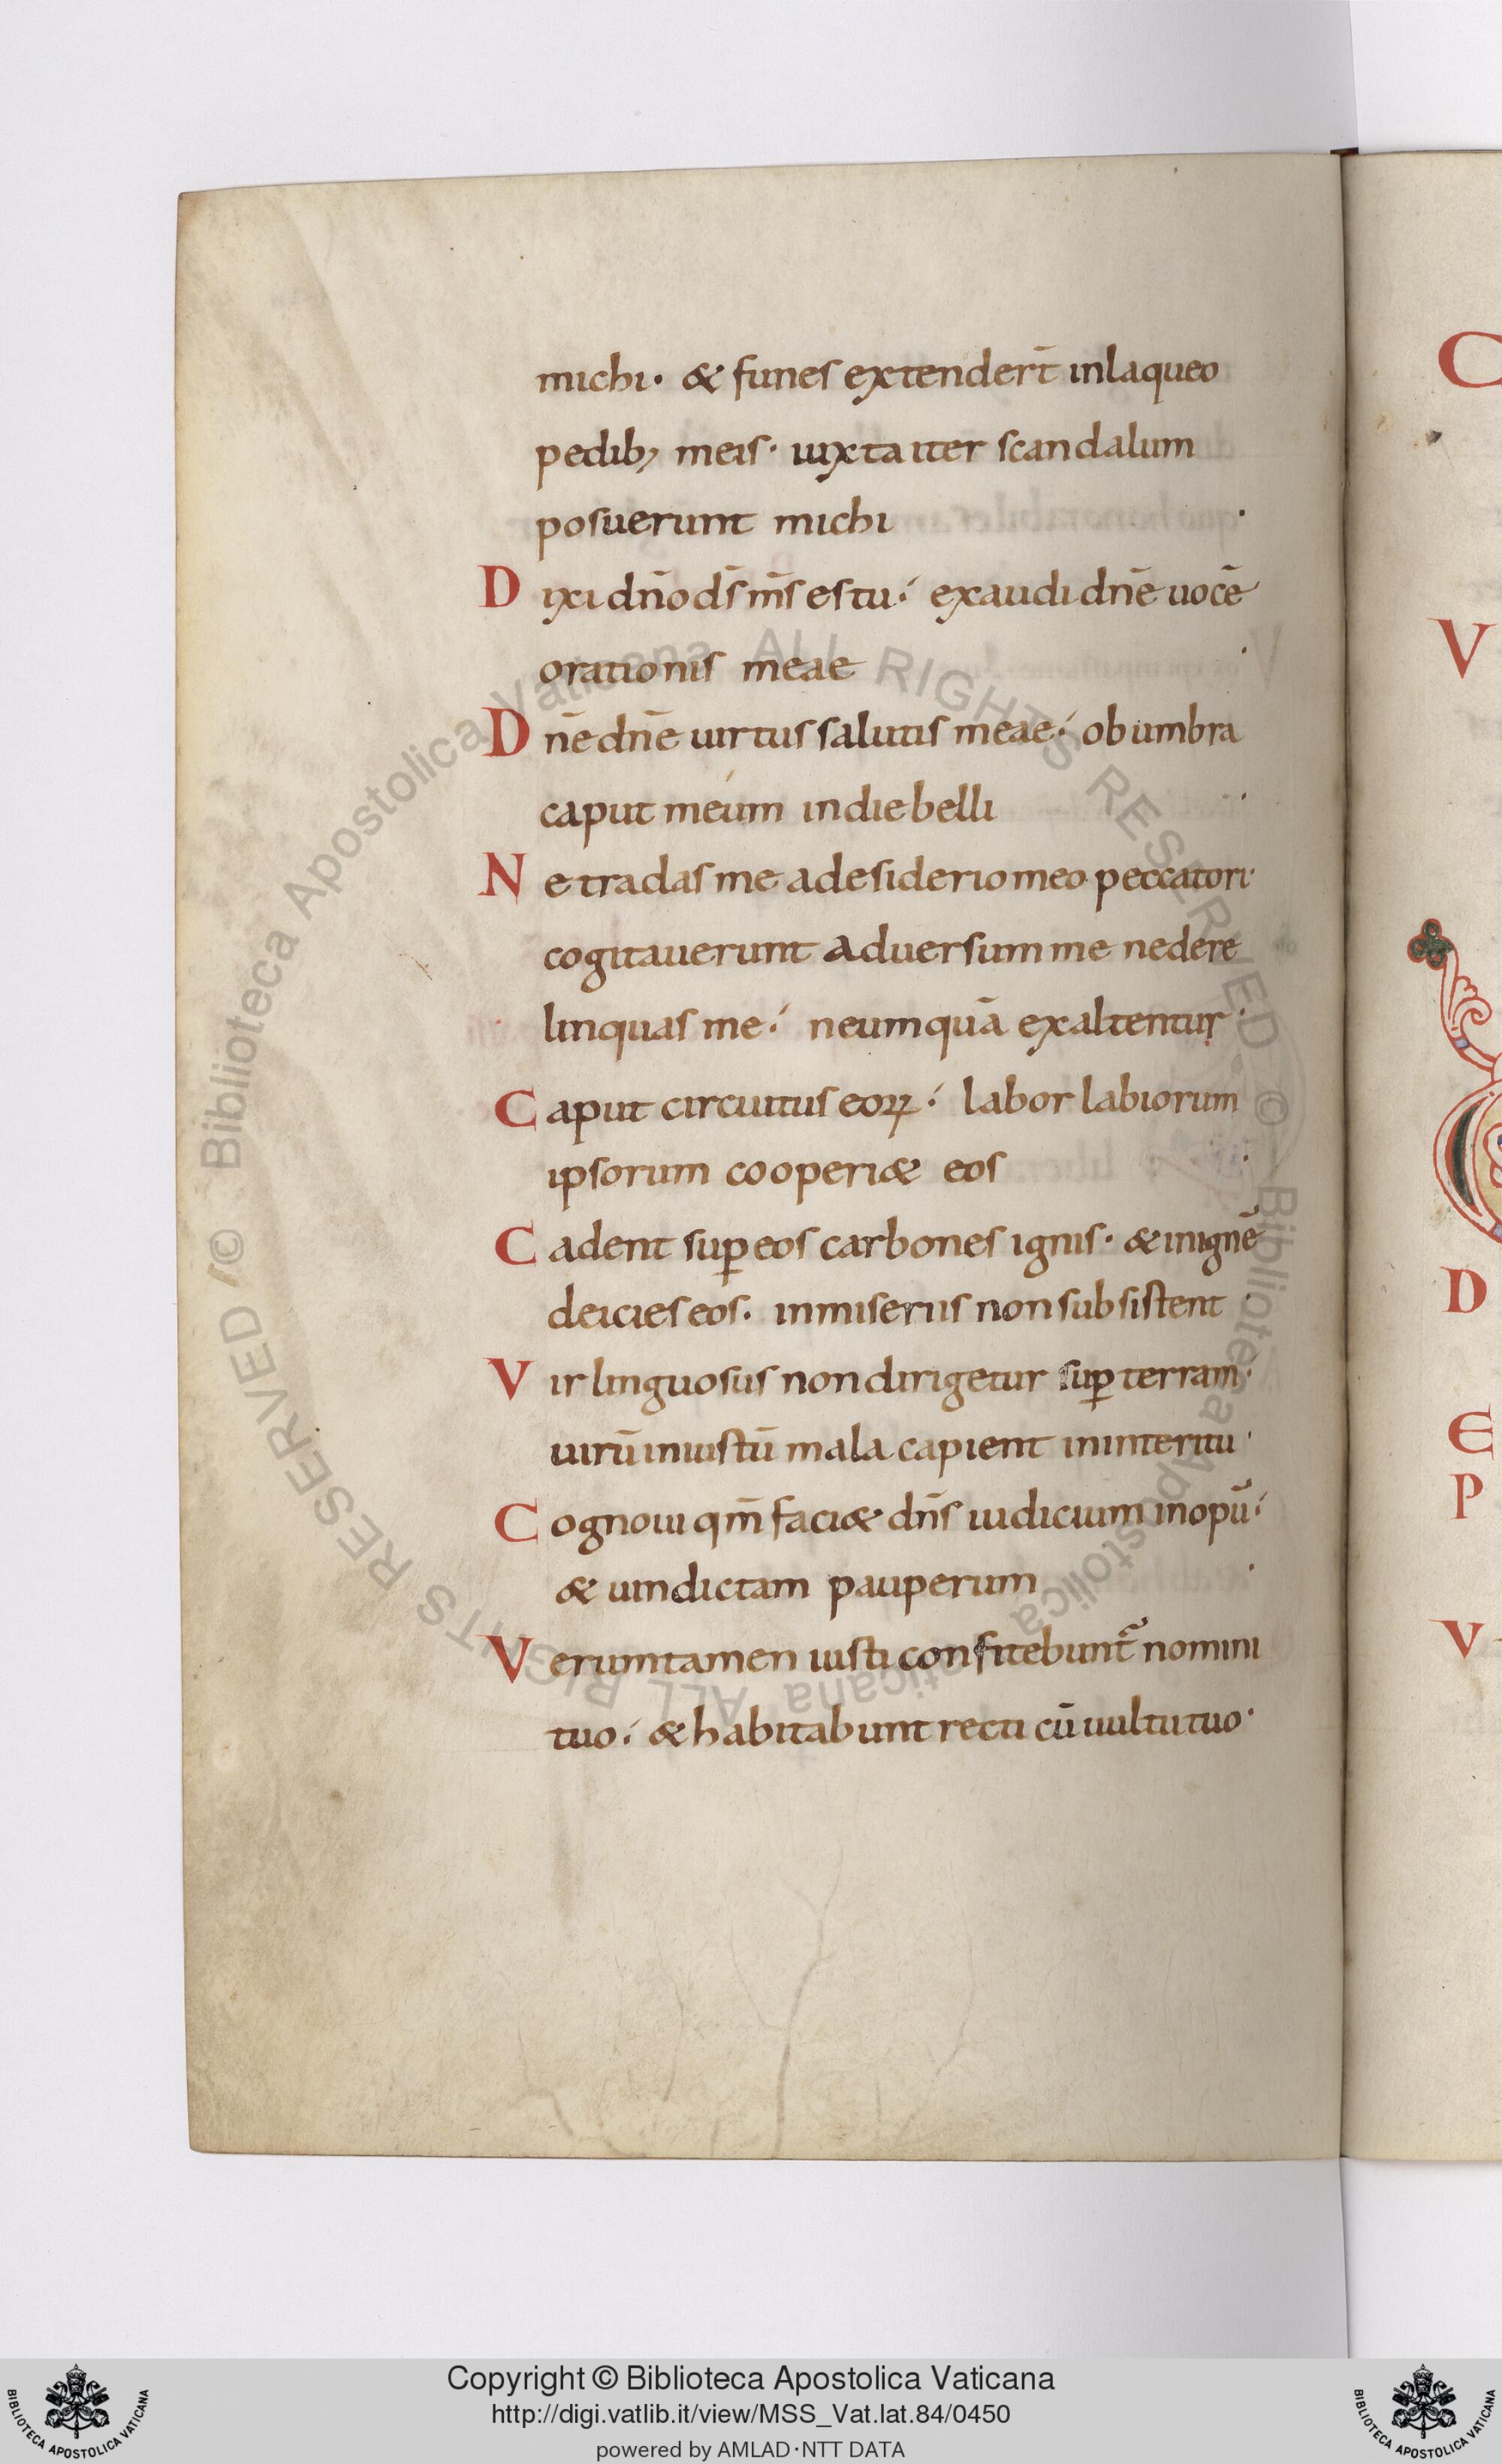 michi· & funes extender̄t inlaqueo
pedib; meis· iuxta iter scandalum
posuerunt michi ·
D ixi dn̄o ds̄ ms̄ es tu· exaudi dn̄e uocē
orationis meae ·
D n̄e dn̄e uirtus salutis meae· obumbra
caput meum in die belli ·
N e tradas me a desiderio meo peccatori·
cogitauerunt aduersum me ne dere
linquas me· ne umquā exaltentur·
C aput circuitus eoꝝ· labor labiorum
ipsorum cooperi& eos ·
C adent suꝑ eos carbones ignis· & in ignē
deicies eos· in miseriis non subsistent ·
V ir linguosus non dirigetur suꝑ terram·
uirū iniustū mala capient in interitu ·
C ognoui qm̄ faci& dn̄s iudicium inopū·
& uindictam pauperum ·
V erumtamen iusti confitebunt̄ nomini
tuo· & habitabunt recti cū uultu tuo·
C
V
D
E
P
V
© Biblioteca Apostolica Vaticana ALL RIGHTS RESERVED © Biblioteca Apostolica Vaticana ALL RIGHTS RESERVED
Copyright © Biblioteca Apostolica Vaticana
http://digi.vatlib.it/view/MSS_Vat.lat.84/0450
powered by AMLAD·NTT DATA
BIBLIOTECA APOSTOLICA VATICANA
BIBLIOTECA APOSTOLICA VATICANA